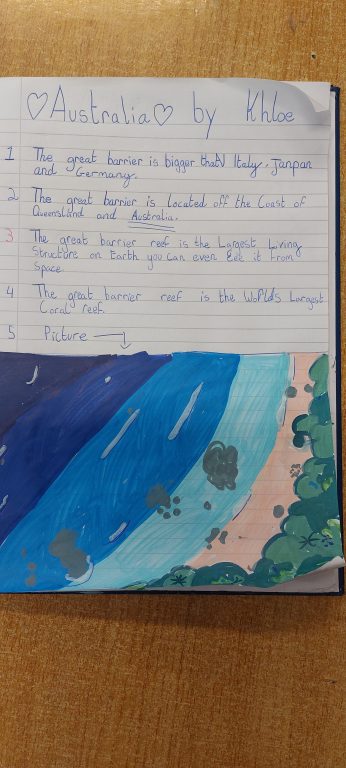 ♡Australia♡ by Khloe
1 The great barrier is bigger than Italy, Janpan
and Germany.
2 The great barrier is located off the Coast of
Queensland and Australia.
3 The great barrier reef is the Largest Living
Structure on Earth you Can even See it From
Space
4 The great barrier reef is the Worlds Largest
Coral reef.
5 Picture